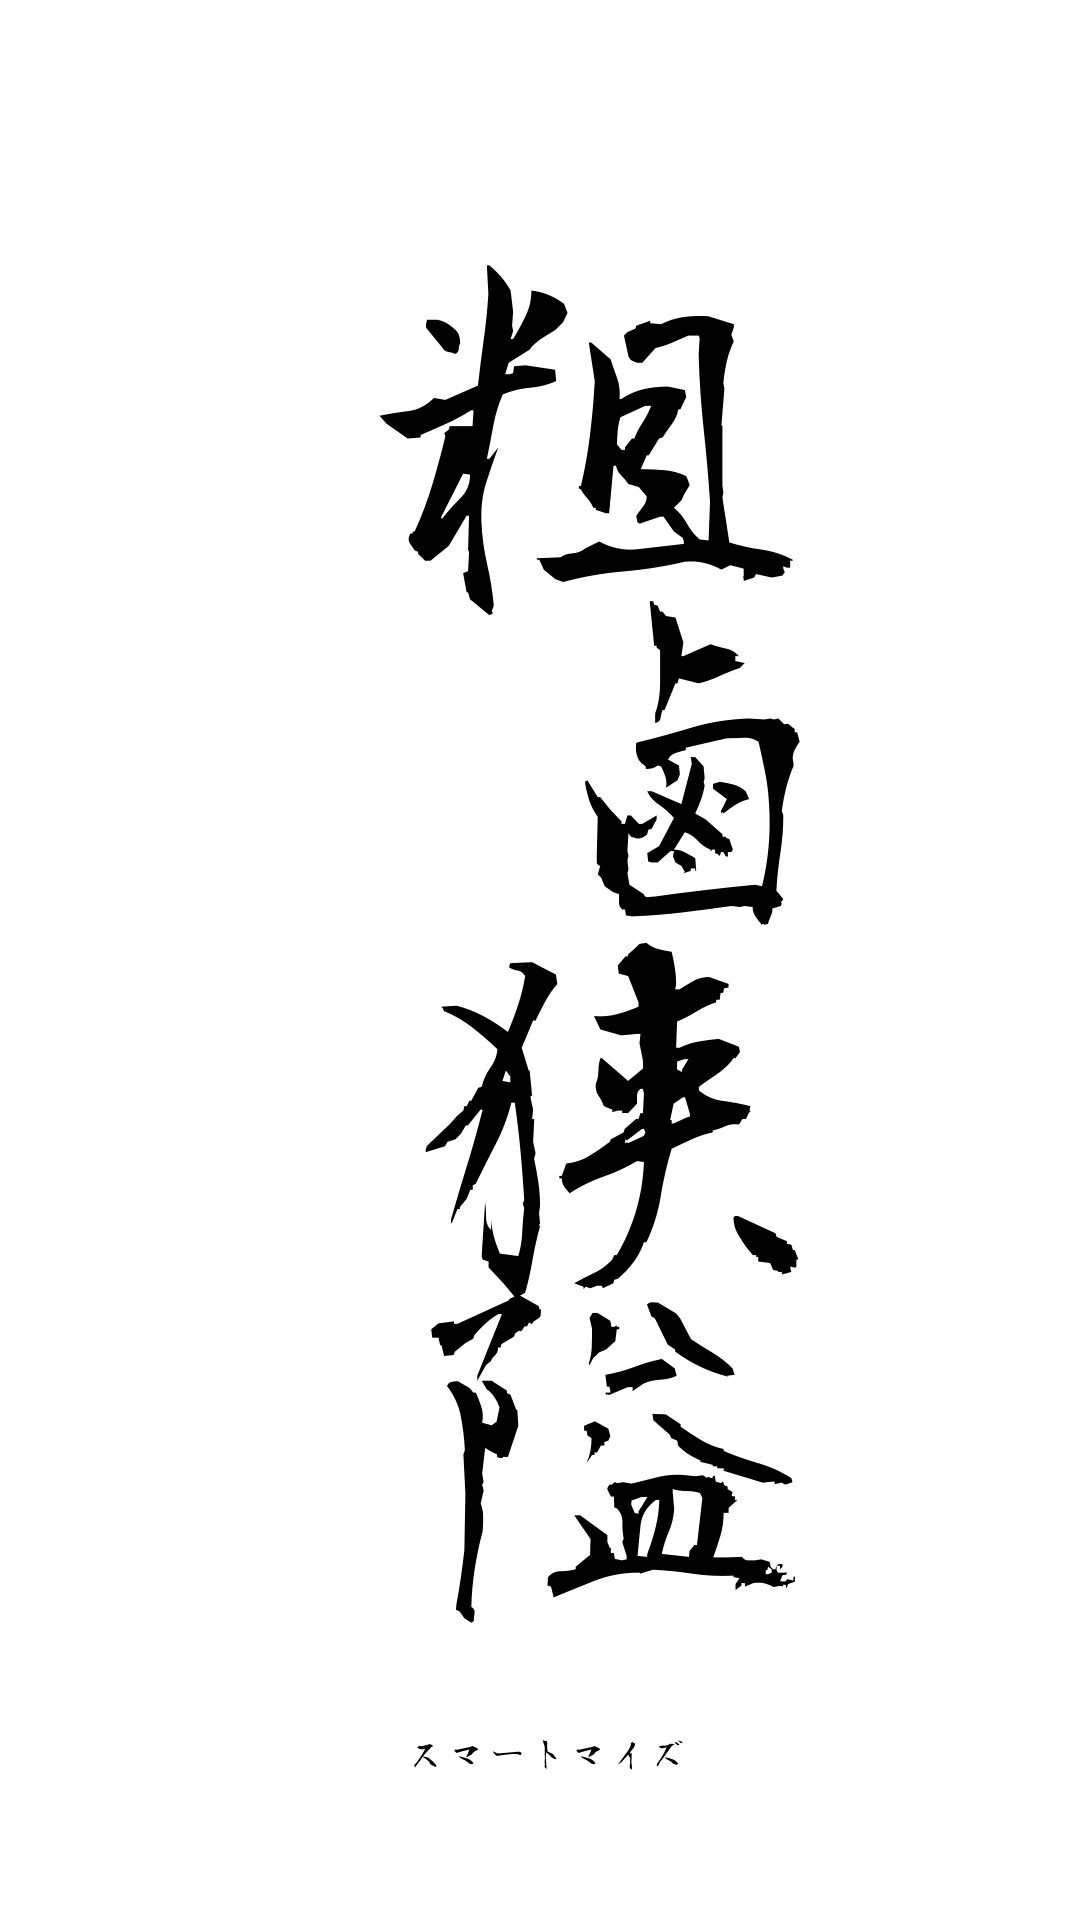 粗鹵狭隘
スマートマイズ